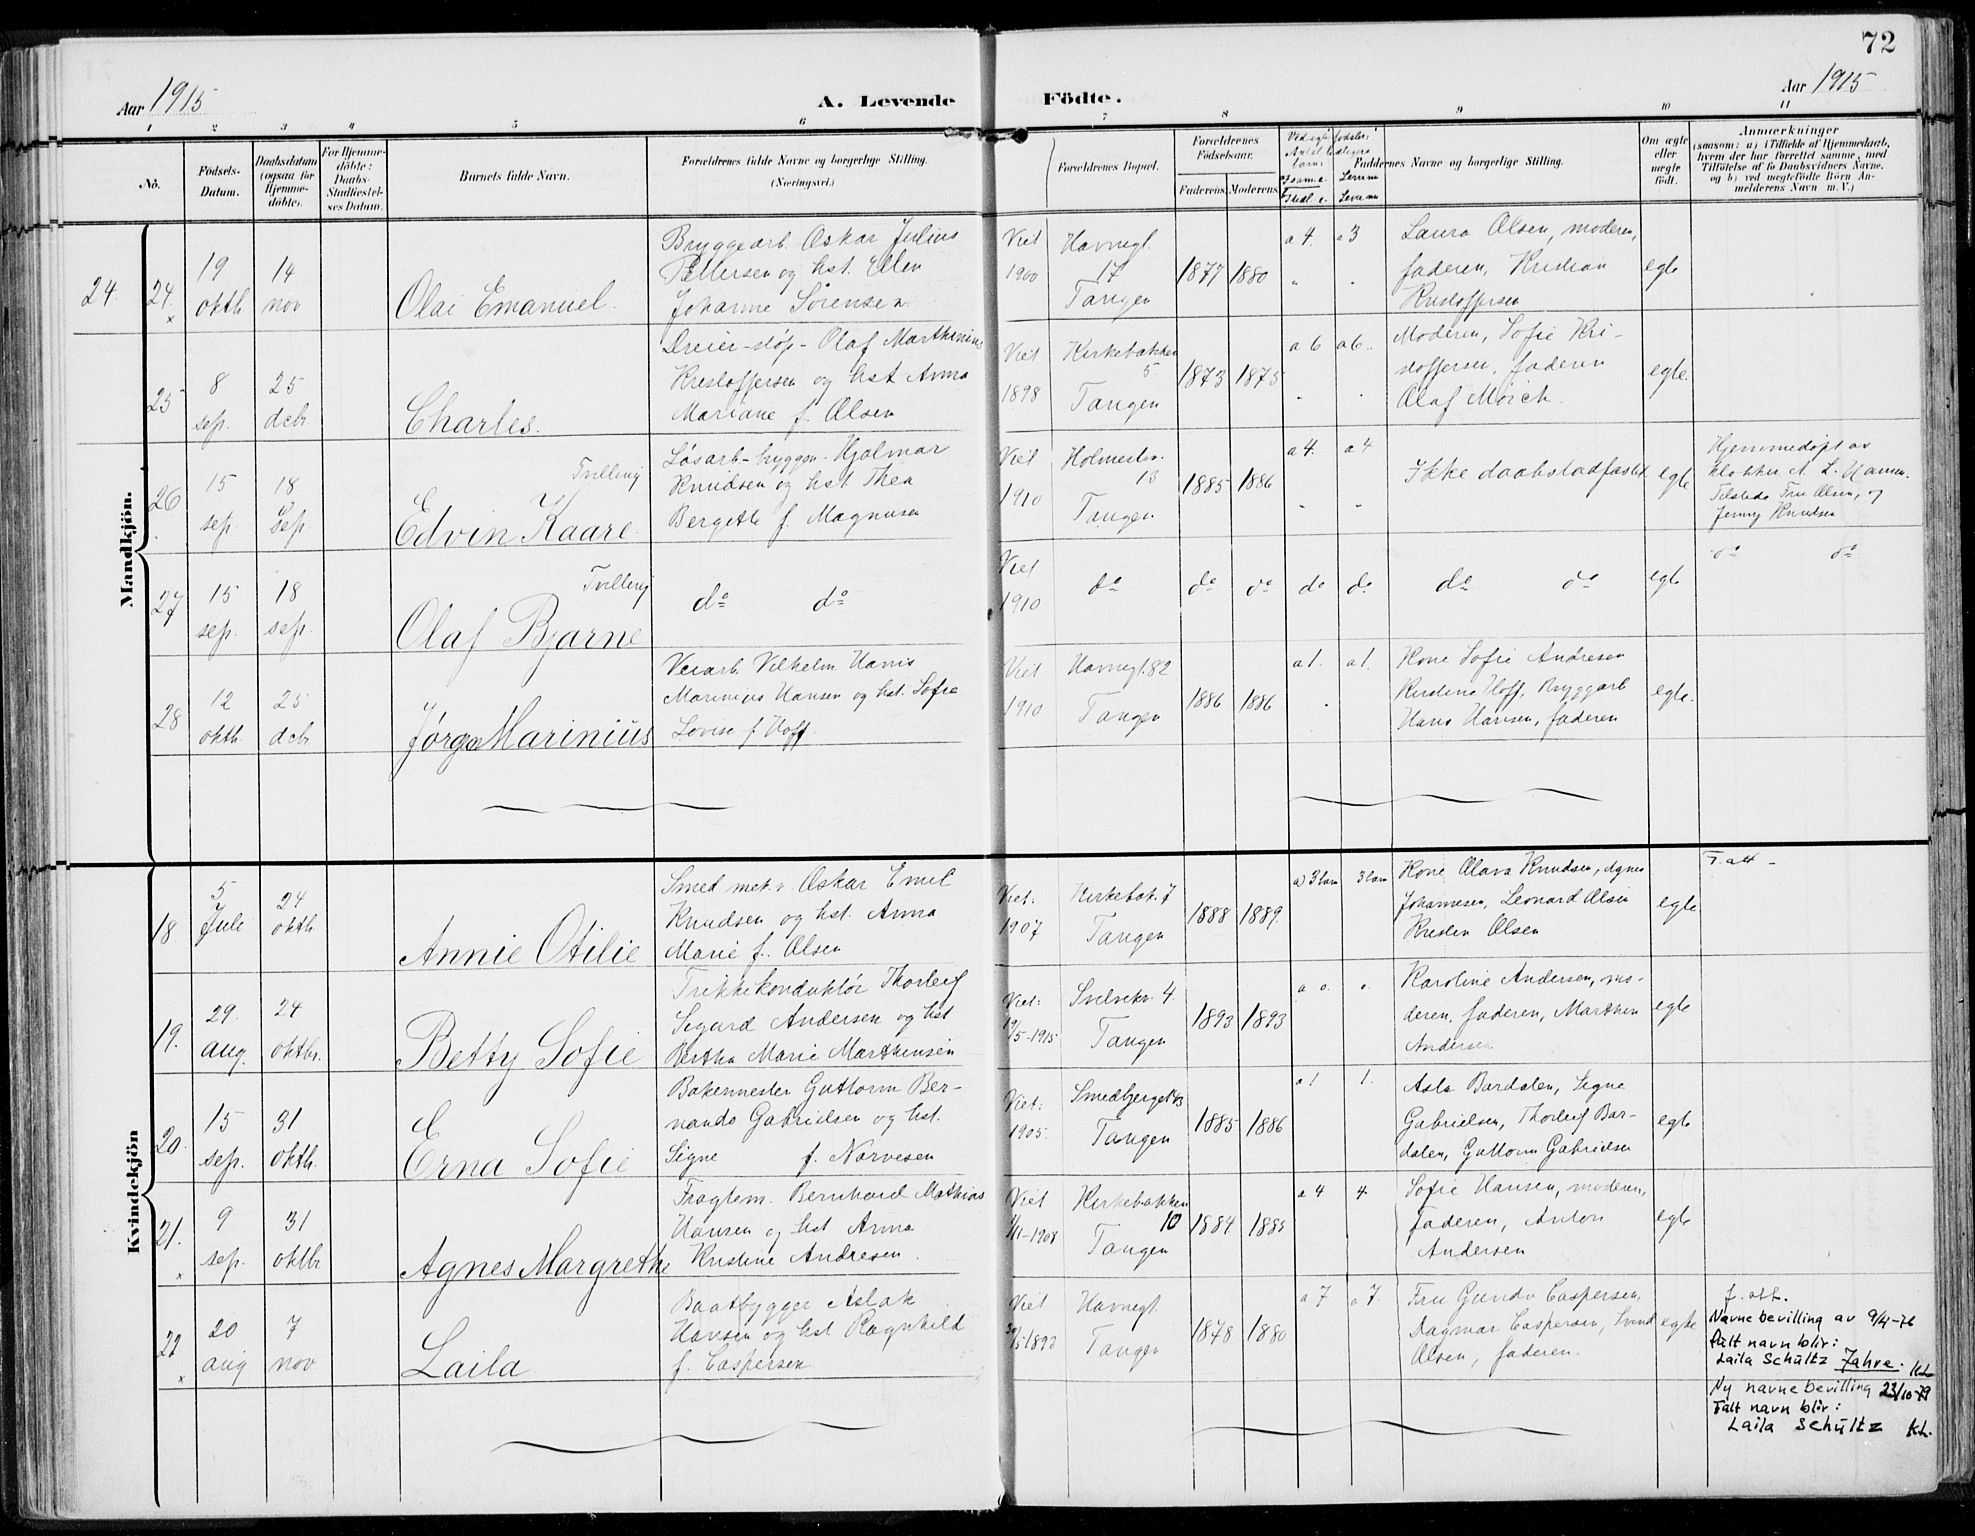 72
Aar 1915
A. Levende Födte.
Aar 1915
1 2 3 4 5 6 7 8 9 10 11
No.
Födsels-Datum.
Daabsdatum (ogsaa for Hjemme-döbte).
For Hjemme-döbte: Daabs-Stadfæstel-ses Datum.
Barnets fulde Navn.
Forældrenes fulde Navne og borgerlige Stilling.
(Næringsvei.)
Forældrenes Bopæl.
Forældrenes Födselsaar.
Faderens. Moderens.
Faddernes Navne og borgerlige Stilling.
Om ægte eller uægte födt.
Anmærkninger
(saasom: a) i Tilfælde af Hjemmedaab, hvem der har forrettet samme, med Tilföielse af to Daabsvidners Navne, og b) ved uægtefödte Börn An-melderens Navn m. V.)
Mandkjön.
24. 24. x
19 oktb
14 nov
Olai Emanuel.
Bryggearb. Oskar Julius
Pettersen og hst. Ellen
Johanne Sørensen.
Viet 1900
Havnegt. 17
Tangen
1877 1880
a 4. a 3
Laura Olsen, moderen,
faderen, Kristian
Kristoffersen
egte
25
8 sep.
25 dcbr.
Charles.
Dreier-støp- Olaf Marthinius
Kristoffersen og hst Anna
Mariane f. Olsen
Viet 1898
Kirkebakken 5.
Tangen
1873 1875
a 6 a 6.
Moderen, Sofie Kri-
stoffersen, faderen
Olaf Mørch.
egte.
26
15 sep.
18 Sep.
Tvilling
Edvin Kaare.
Løsarb-bryggm. Hjalmar
Knudsen og hst Thea
Bergette f. Magnusen
Viet 1910
Holmestr. 13
Tangen
1885 1886
a 4. a 4
Ikke daabstadfæstet
egte
Hjemmedøpt av
klokker A. L. Hansen.
Tilstede Fru Olsen, og
Jenny Knudsen
27
15 sep.
18 sep.
Tvilling
Olaf Bjarne
do do
Viet 1910
do
do do
do do
do do
egte
do do
28
12 oktb.
25 dcbr
Jørgen Marinius
Veiarb. Vilhelm Hans
Marinius Hansen og hst. Sofie
Lovise f Hoff.
Viet 1910
Havnegt. 82
Tangen
1886 1886
a 1. a 1.
Kone Sofie Andresen
Kirstine Hoff, Bryggarb
Hans Hansen, faderen
egte.
Kvindekjön
18
5 Juli
24 oktb
Annie Otilie
Smed mek. v. Oskar Emil
Knudsen og hst. Anna
Marie f. Olsen
Viet. 1907
Kirkebak. 7
Tangen
1888 1889.
a) 3 barn 3 barn
Kone Olava Knudsen, Agnes
Johannesen, Leonard Olsen
Kristen Olsen
egte
F. att -
19.
29. aug.
24 oktbr.
Betty Sofie
Trikkekonduktør Thorleif
Sigurd Andersen og hst
Bertha Marie Marthinsen
Viet: 19/5-1915
Svelvikv. 4
Tangen
1893 1893
a o. o.
Karoline Andersen, mo-
deren, faderen, Marthin
Andersen
egte
20.
15 sep.
31 oktb.
Erna Sofie
Bakermester Guttorm Ber-
nando Gabrielsen og hst.
Signe f. Narvesen
Viet: 1905.
Tangen
1885 1886
a 1 1.
Asta Bardalen, Signe
Gabrielsen, Thorleif Bar-
dalen, Guttorm Gabrielsen
egte
21. x
9 sep.
31 oktbr
Agnes Margrethe
Fragtem. Bernhard Mathias
Hansen og hst Anna
Kristine Andresen.
Viet 1/11-1908
Kirkebakken 10
Tangen
1884 1885
a 4 4.
Sofie Hansen, moderen,
Faderen, Anton
Andersen
egte
22 x
20 aug
7 nov.
Laila
Baatbygger Aslak
Hansen og hst Ragnhild
f. Caspersen
Viet
Havnegt.
Tangen
1878 1880
a 7 a 7.
Fru Gunda Caspersen,
Dagmar Caspersen,
Olsen, faderen.
egte
f. att.
Navnebevilling av 9/4-76
fult navn blir:
Laila Schultz Jahre. KL
Ny navnebevilling 23/10-79
Fult navn blir:
Laila Schultz KL.